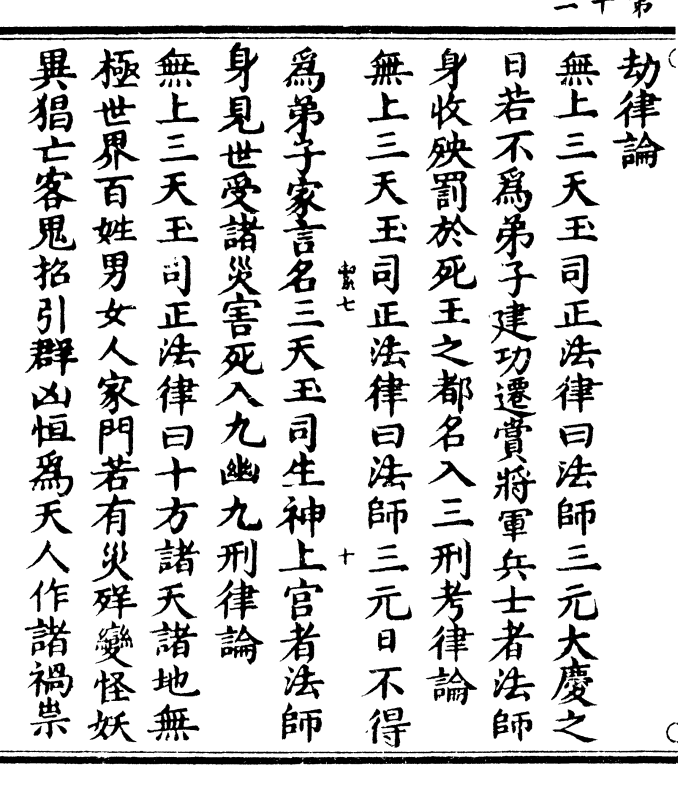 劫律論
無上三天玉司正法律曰法師三元大慶之
日若不爲弟子建功遷賞將軍兵士者法師
身收殃罰於死王之都名入三刑考律論
無上三天玉司正法律曰法師三元日不得
爲弟子家言名三天玉司生神上官者法師
身見世受諸災害死入九幽九刑律論
無上三天玉司正法律曰十方諸天諸地無
極世界百姓男女人家門若有災殃變怪妖
異猖亡客鬼招引群凶恒爲天人作諸禍祟
七
十